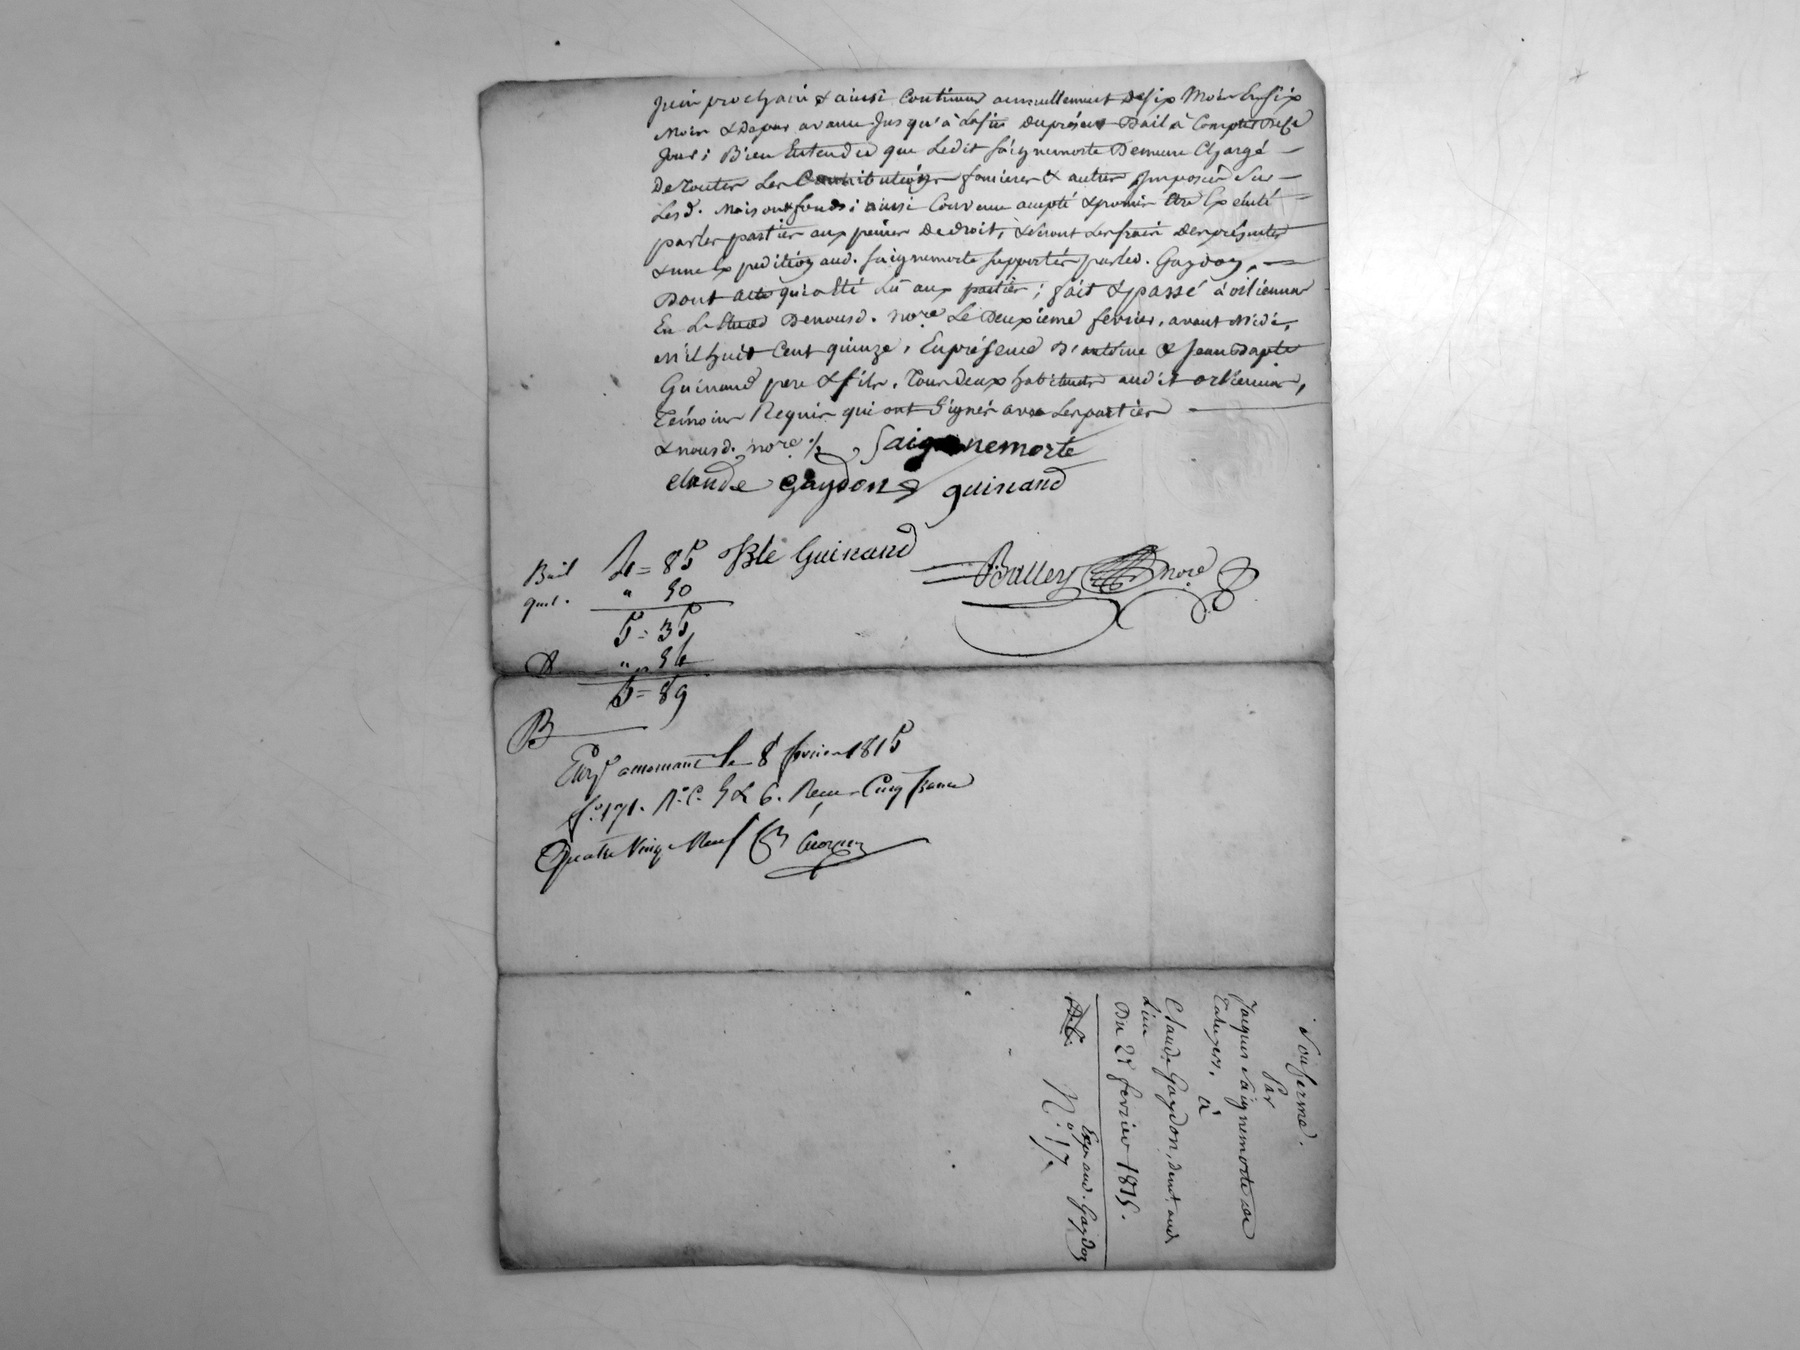 Juin prochain & ainsi Continuer annuellement de six Mois En six
Mois & d'avance Jusqu'à la fin du présent Bail à Compter de ce
Jour; Bien Entendu que Ledit Saignemorte Demeure Chargé
De toutes Les Contributions foncieres & autres Imposées sur
Lesd. Maison & fonds; ainsi Convenu accepté & promis être Exécuté
par les parties aux peines de droit, & seront Les frais des présentes
& une Expedition aud. Saignemorte supportés par led. Gaydon,
Dont acte qui a été Lu aux parties; fait & passé à
En L'Etude De nousd. nore Le Deuxieme fevrier, avant Midi,
Mil huit Cent quinze, En présence D'antoine & Jean Bapte
Guinand pere & fils, Tous deux habitants audit
Témoins Requis qui ont Signés avec Les parties
& nousd. nore ./. Saignemorte
claude Gaydon guinand
Bte Guinand
Balley nore
Bail 4 = 85
quit. " 50
5 = 35
" 54
5 = 89
B
Enrgé le 8 fevrier 1815
fo. 171. Ro. C. 5 & 6. Recu Cinq francs
Quatre Vingt Neuf
Sousferme.
Par
Jacques Saignemorte de
à
Claude Gaydon, demt. aud.
Lieu
Du 2e fevrier 1815.
Exp. aud. Gaydon
No. 17